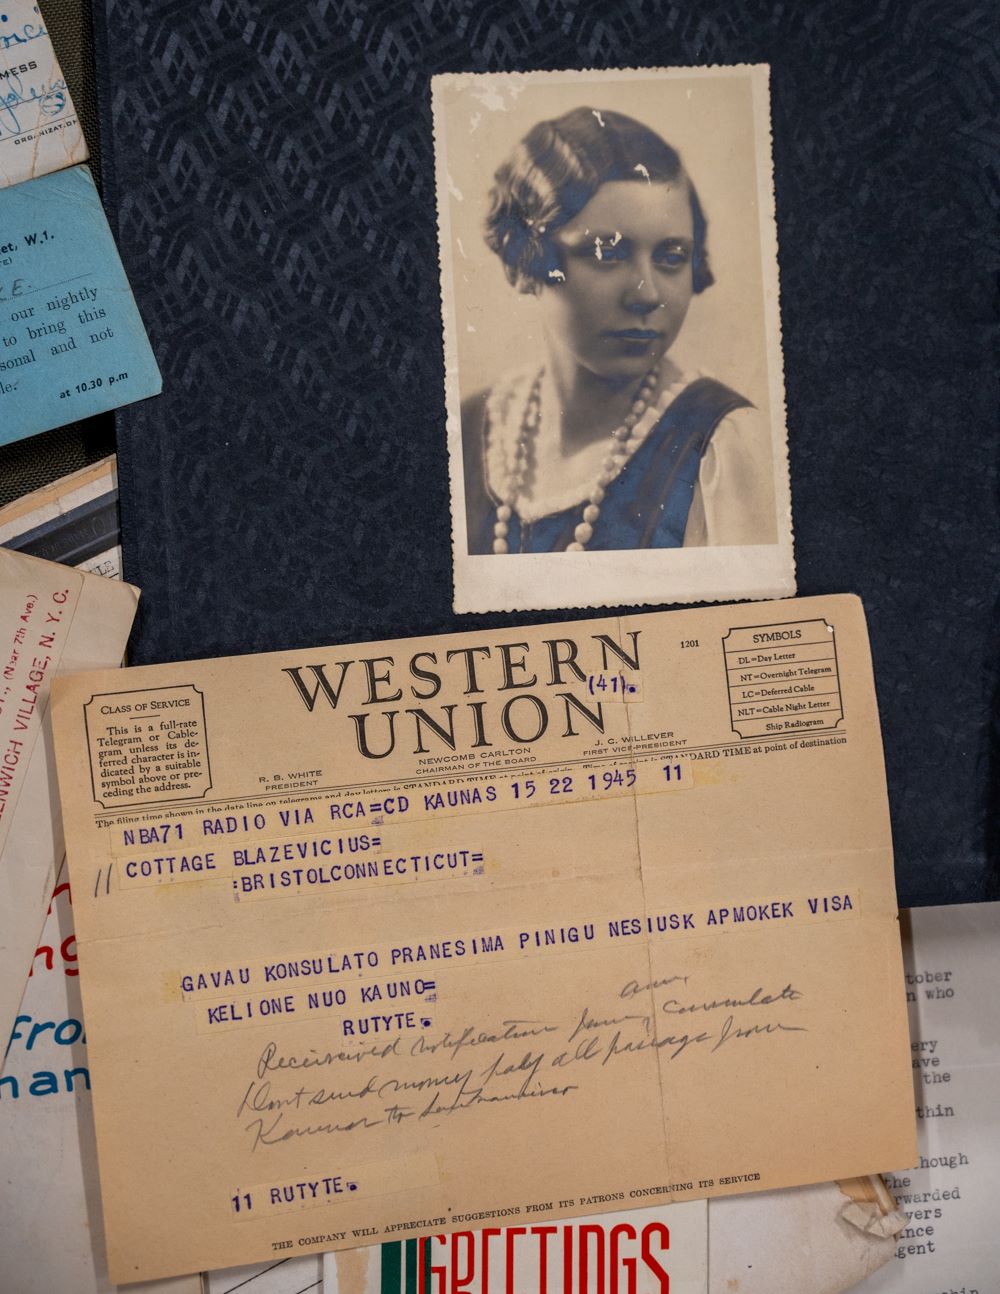 MESS
ORGANIZAT
et, W.1.
our nightly
to bring this
sonal and not
at 10.30 p.m
(Near 7th Ave.)
VILLAGE, N. Y. C.
WESTERN
UNION
(41).
1201
CLASS OF SERVICE
This is a full-rate
Telegram or Cable-
gram unless its de-
ferred character is in-
dicated by a suitable
symbol above or pre-
ceding the address.
SYMBOLS
DL=Day Letter
NT=Overnight Telegram
LC=Deferred Cable
NLT=Cable Night Letter
Ship Radiogram
R. B. WHITE
PRESIDENT
NEWCOMB CARLTON
CHAIRMAN OF THE BOARD
J. C. WILLEVER
FIRST VICE-PRESIDENT
The filing time shown in the date line on telegrams and day letters is STANDARD TIME at point of origin. Time of receipt is STANDARD TIME at point of destination
NBA71 RADIO VIA RCA=CD KAUNAS 15 22 1945 11
COTTAGE BLAZEVICIUS=
:BRISTOLCONNECTICUT=
GAVAU KONSULATO PRANESIMA PINIGU NESIUSK APMOKEK VISA
KELIONE NUO KAUNO=
RUTYTE.
Received notification from consulate
Dont send money pay all passage from
Kaunas to
11 RUTYTE.
THE COMPANY WILL APPRECIATE SUGGESTIONS FROM ITS PATRONS CONCERNING ITS SERVICE
GREETINGS
tober
n who
ery
ave
the
thin
hough
the
rwarded
yers
ince
gent